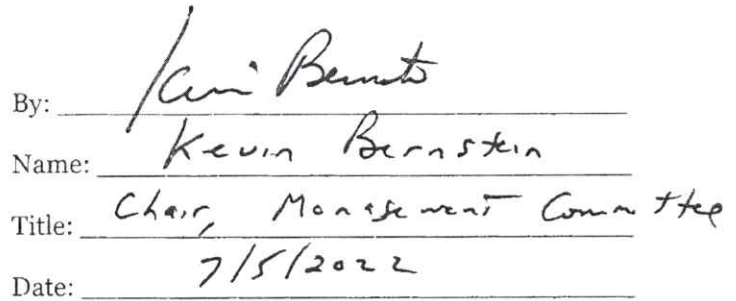 By: Kevin Bernstein
Name: Kevin Bernstein
Title: Chair, Management Committee
Date: 7/5/2022